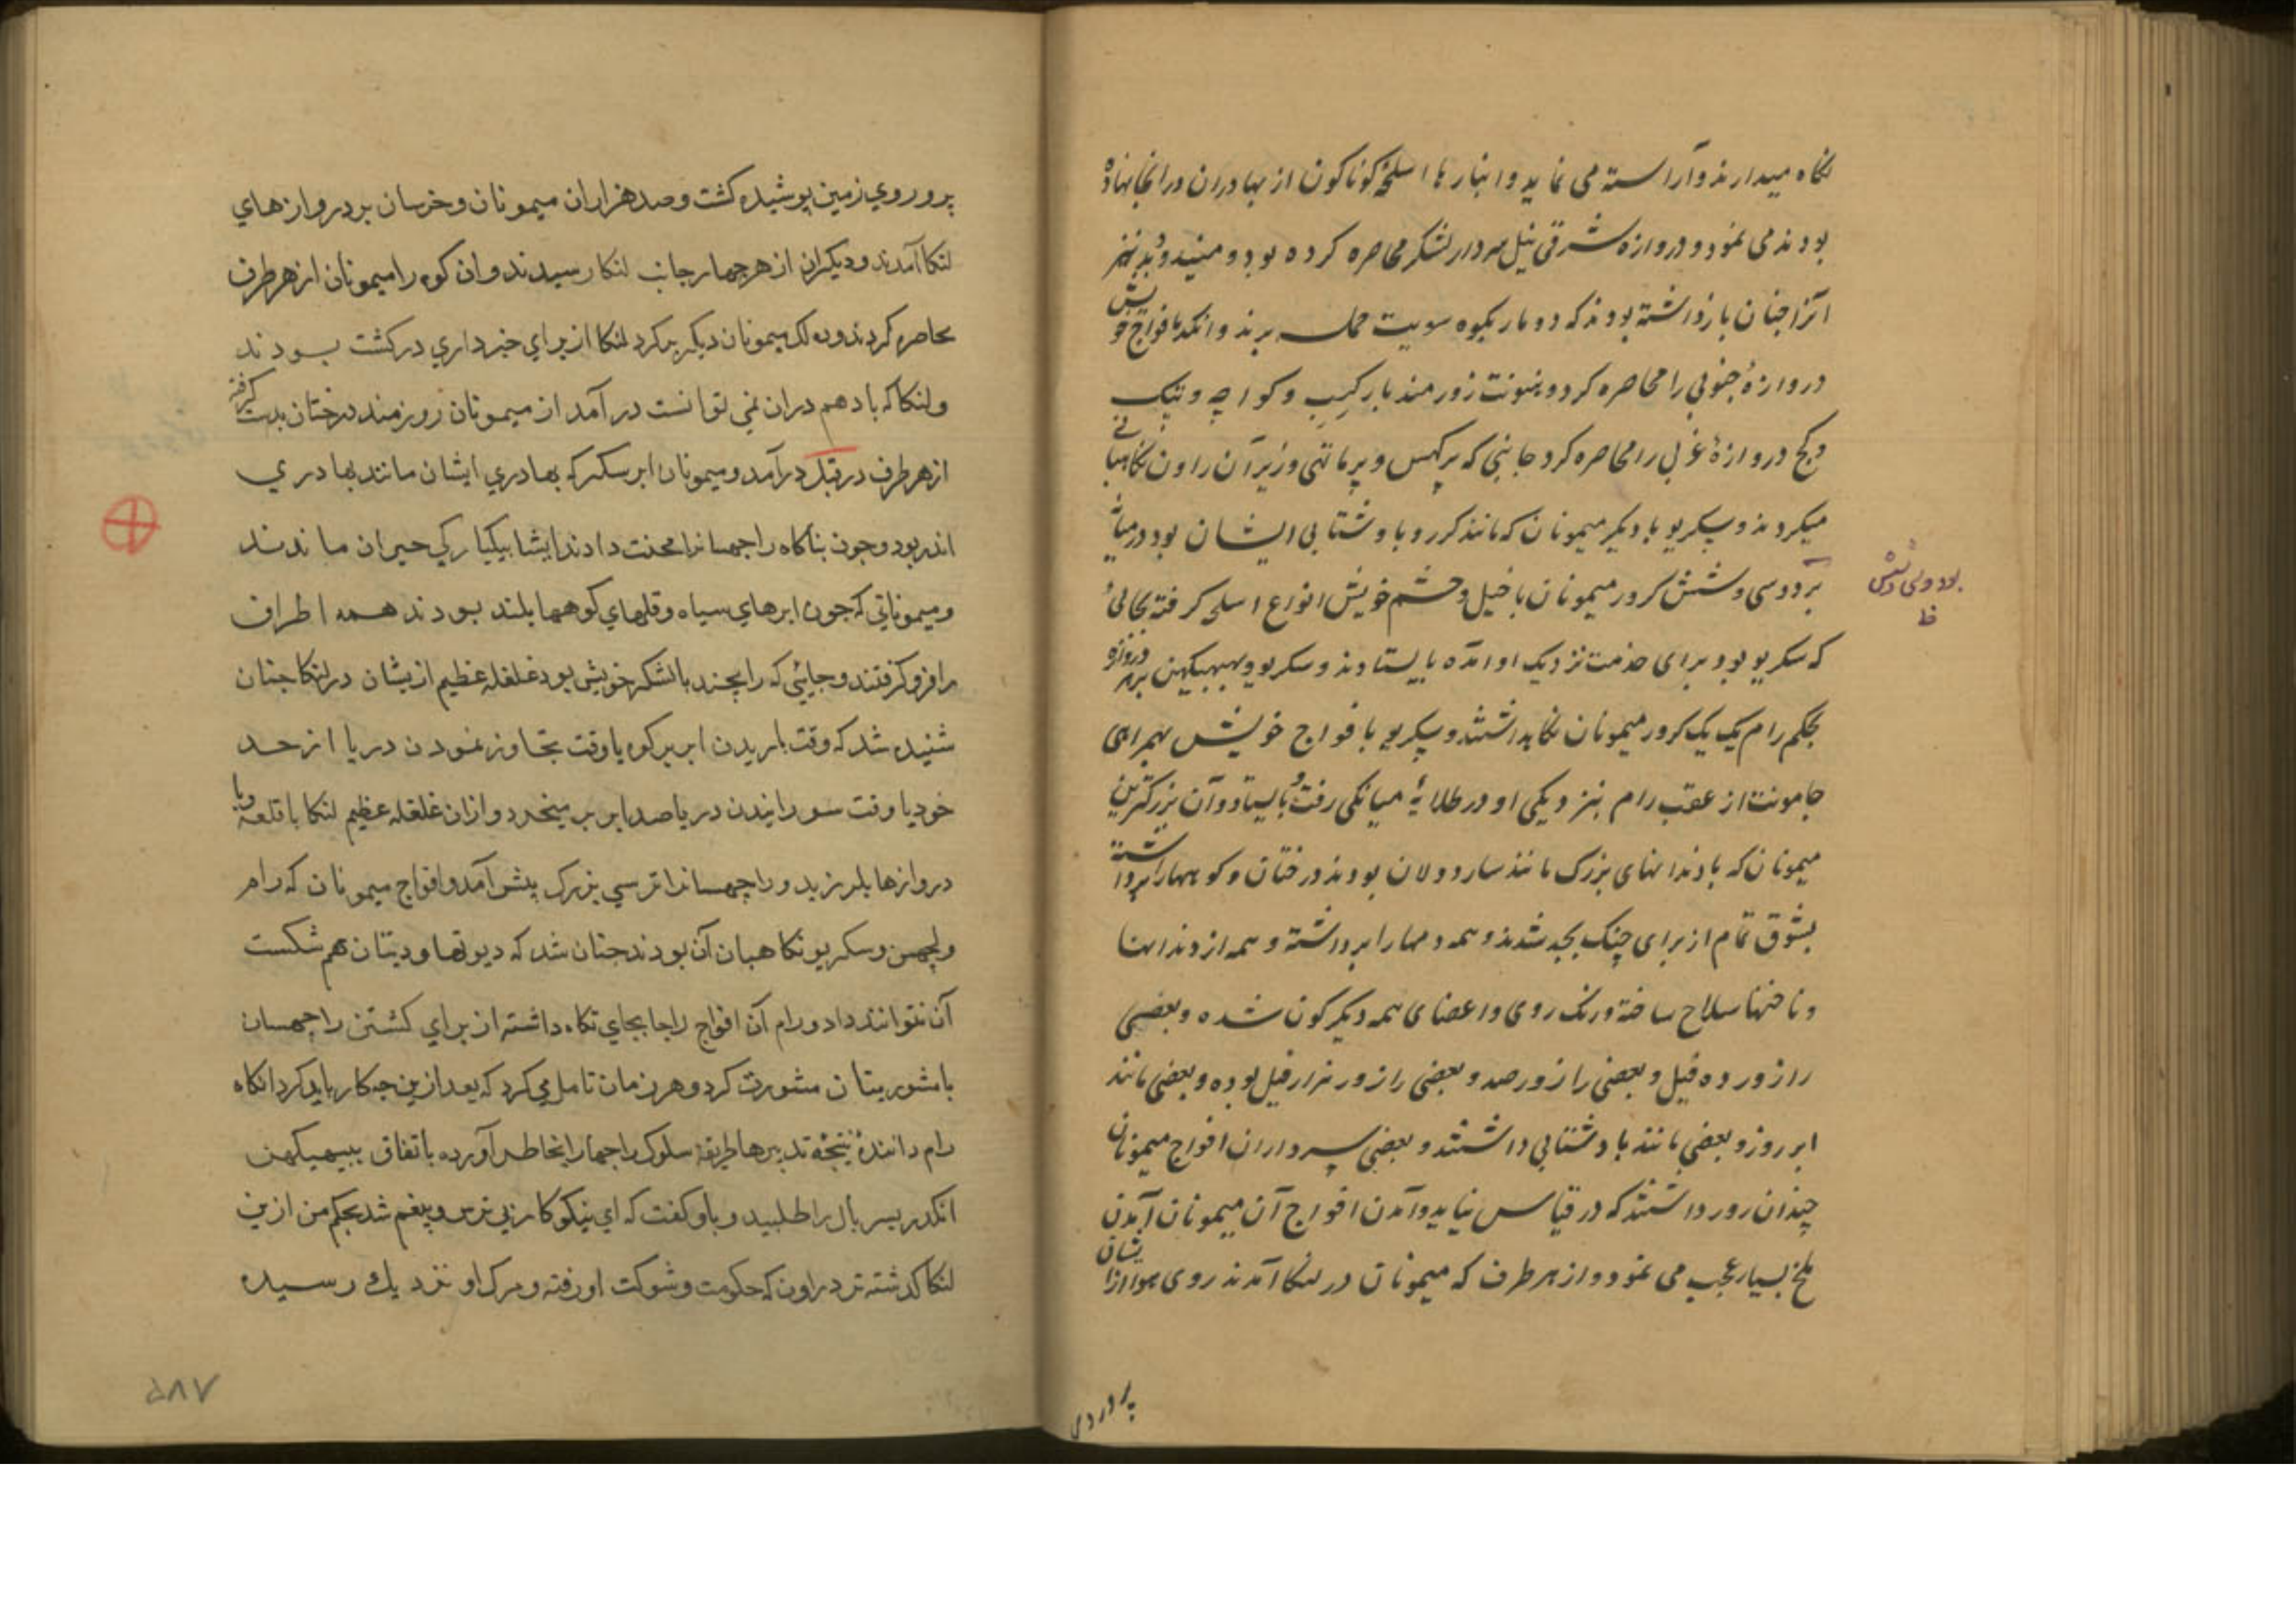 نکاه میدارند وآراسته می نماید وانبار ها اسلحهٔ کوناکون از بهادران درانجا نهاده
بودند می نمود و دروازه شرقی نیل سردار لشکر محاصره کرده بود و میند و دبد نیز
آنرا چنان بازداشته بودند که دو مار بکوه سویت حمله برند وانکد بافواج خویش
دروازهٔ جنوبی را محاصره کرد و هنونت زورمند با رکیب و کواچه و پنک
وکج دروازهٔ غربی را محاصره کرد جانبی که برکهس و پرماتهی وزیر آن راون نکاهبانی
میکردند وسکریو با دیکر میمونان که مانند کرر و باد شتابی ایشان بود درمیان
بود وسی و شش کرور میمونان با خیل و حشم خویش انواع اسلحه کرفته بجائی
که سکریو بود برای خدمت نزدیک او آمده بایستادند و سکریو و بهبهیکهن بر هر دروازه
بحکم رام یک یک کرور میمونان نکاهداشتند و سکریو با فواج خویش بهمراهی
جامونت از عقب رام بنزدیکی او در طلایهٔ میانکی رفت و بایستاد وآن بزرکترین
میمونان که با دندانهای بزرک مانند ساردولان بودند درختان وکوهها را برداشته
بشوق تمام از برای جنک بجد شدند و همه دمها را برداشته و همه از دندانها
وناخنها سلاح ساخته ورنک روی واعضای همه دیکرکون شده وبعضی
را زور ده فیل و بعضی را زور صد و بعضی را زور هزار فیل بوده و بعضی مانند
ابر روز و بعضی مانند باد شتابی داشتند و بعضی سرداران افواج میمونان
چندان زور داشتند که در قیاس نیاید وآمدن افواج آن میمونان آمدن
ملخ بسیار عجب می نمود و از هر طرف که میمونان در لنکا آمدند روی هوا از ایشان
پر و روی
بود وسی وشش
ظ
پر و روي زمین پوشیده کشت و صد هزاران میمونان و خرسان بر دروازهاي
لنکا آمدند ودیکران از هر چهار جانب لنکا رسیدند وان کوه را میمونان از هر طرف
محاصره کردند وده لک میمونان دیکر برکرد لنکا از براي خبرداري درکشت بودند
ولنکا که باد هم دران نمي توانست در آمد از میمونان زورمند درختان بدست کرفته
از هر طرف در قبل درآمد و میمونان ابر سکر که بهادري ایشان مانند بهادري
اندر بود و چون بناکاه راچهسانرا محنت دادند ایشان بیکبارکي حیران ماندند
و میموناني که چون ابرهاي سیاه و قلهاي کوهها بلند بودند همه اطراف
را فرو کرفتند و جائي که رامچند با لشکر خویش بود غلغله عظیم ازیشان در لنکا چنان
شنیده شد که وقت باریدن ابر بر کوه یا وقت تجاوز نمودن دریا از حد
خود یا وقت سورانیدن دریا صدا بر میخیزد وازان غلغله عظیم لنکا با قلعه وبا
دروازها بلرزید و راچهسانرا ترسي بزرک پیش آمد و افواج میمونان که رام
و لچهمن و سکریو نکاهبان آن بودند چنان شد که دیوتها و دیتان هم شکست
آن نتوانند داد و رام آن افواج را جا بجاي نکاه داشته از براي کشتن راچهسان
با مشوریتان مشورت کرد و هر زمان تامل مي کرد که بعد ازین چه کار باید کرد انکاه
رام دانندهٔ نتیجهٔ تدبیرها طریقهٔ سلوک راجها را بخاطر آورده باتفاق ببهیکهن
انکد پسر بال را طلبید و باو کفت که اي نیکوکار بي ترس و بیغم شد بحکم من ازین
لنکا کذشته نزد راون که حکومت و شوکت او رفته و مرک او نزدیک رسیده
۵۸۷